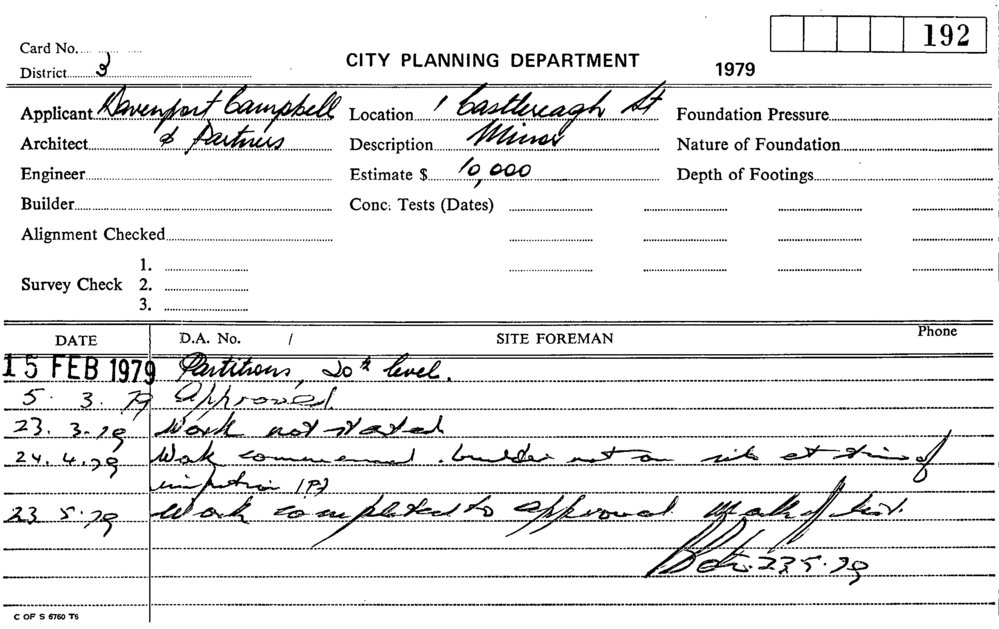 192
Card No.
District 3
CITY PLANNING DEPARTMENT
1979
Applicant Davenport Campbell
Location 1 Castlereagh St
Foundation Pressure
Architect & Partners
Description Minor
Nature of Foundation
Engineer
Estimate $ 10,000
Depth of Footings
Builder
Conc. Tests (Dates)
Alignment Checked
1.
Survey Check 2.
3.
DATE D.A. No. / SITE FOREMAN Phone
15 FEB 1979 Partitions, 20th level.
5. 3. 79 Approved.
23. 3. 79 Work not started
24. 4. 79 Work commenced. builder not on site at time of
inspection (P)
23 5. 79 Work completed to approval
23.5.79
C OF S 6760 T6